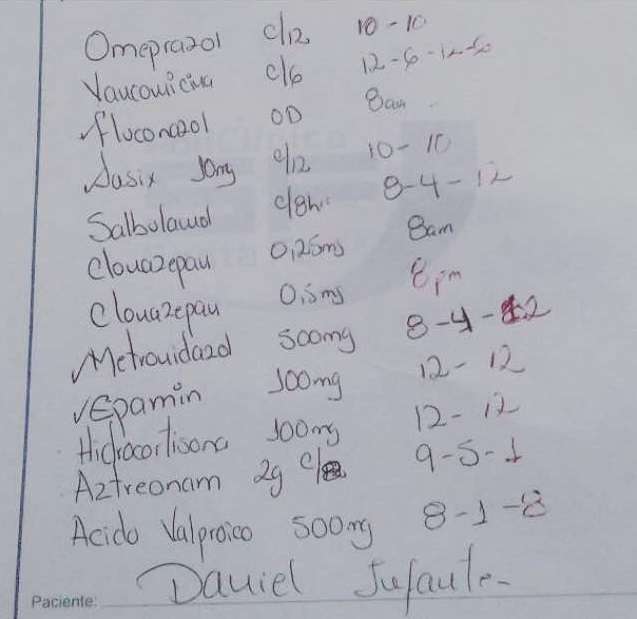 Omeprazol c/12 10-10
Vancomicina c/6 12-6-12-6
Fluconazol OD 8am
Lasix 10mg c/12 10-10
Salbutamol c/8h 8-4-12
Clonazepan 0,25mg 8am
Clonazepan 0,5mg 8pm
Metronidazol 500mg 8-4-12
Epamin 100mg 12-12
Hidrocortisona 100mg 12-12
Aztreonam 2g c/8 9-5-1
Acido Valproico 500mg 8-1-8
Paciente: Daniel Infante